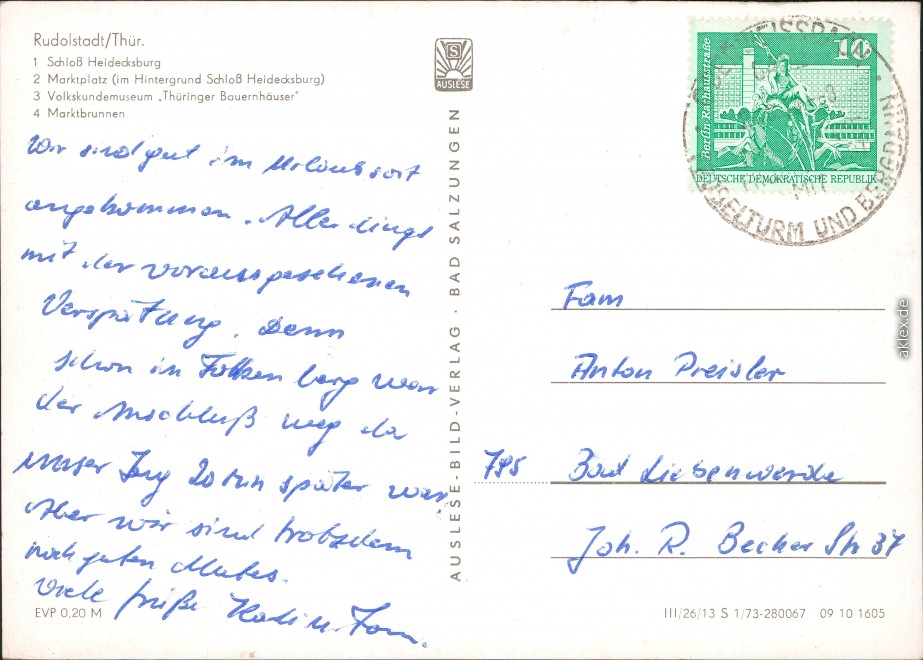 Rudolstadt/Thür.
1 Schloß Heidecksburg
2 Marktplatz (im Hintergrund Schloß Heidecksburg)
3 Volkskundemuseum „Thüringer Bauernhäuser"
4 Marktbrunnen
Wir sind gut im Urlaubsort
angekommen. Allerdings
mit der vorausgesehenen
Verspätung. Denn
schon in Falkenberg war
der Anschluß weg da
unser Zug 20 Min später war.
Aber wir sind trotzdem
noch guten Mutes.
Viele Grüße u. Fam.
EVP 0,20 M
S
AUSLESE
AUSLESE-BILD-VERLAG · BAD SALZUNGEN
10
Berlin Rathausstraße
DEUTSCHE DEMOKRATISCHE REPUBLIK
MIT
KUGELTURM UND BERGBAHN
Fam
Anton Preisler
795 Bad Liebenwerda
Joh. R. Becher Str 37
III/26/13 S 1/73-280067 09 10 1605
aklex.de